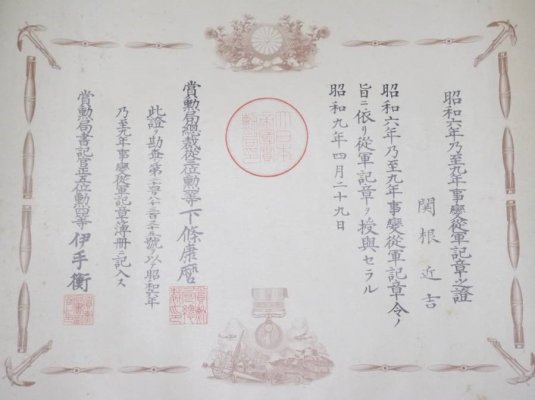 昭和六年乃至九年事變從軍記章之證
関根近吉
昭和六年乃至九年事變從軍記章令ノ
旨ニ依リ從軍記章ヲ授與セラル
昭和九年四月二十九日
賞勲局總裁從三位勲二等下條康麿
此證ヲ勘査シ第 號ヲ以テ昭和六年
乃至九年事變從軍記章簿冊ニ記入ス
賞勲局書記官正五位勲四等伊手衡